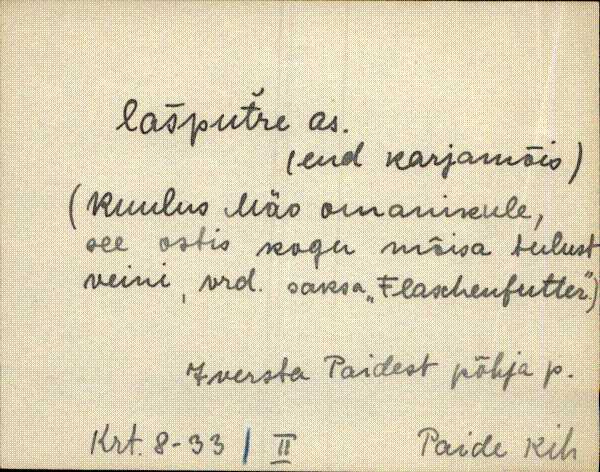 lašputre as.
(end karjamõis)
(kuulus Mäo omanikule,
see ostis kogu mõisa tulust
veini, vrd. saksa „Flaschenfutter".)
7 versta Paidest põhja p.
Krt. 8-33 / II Paide Kih